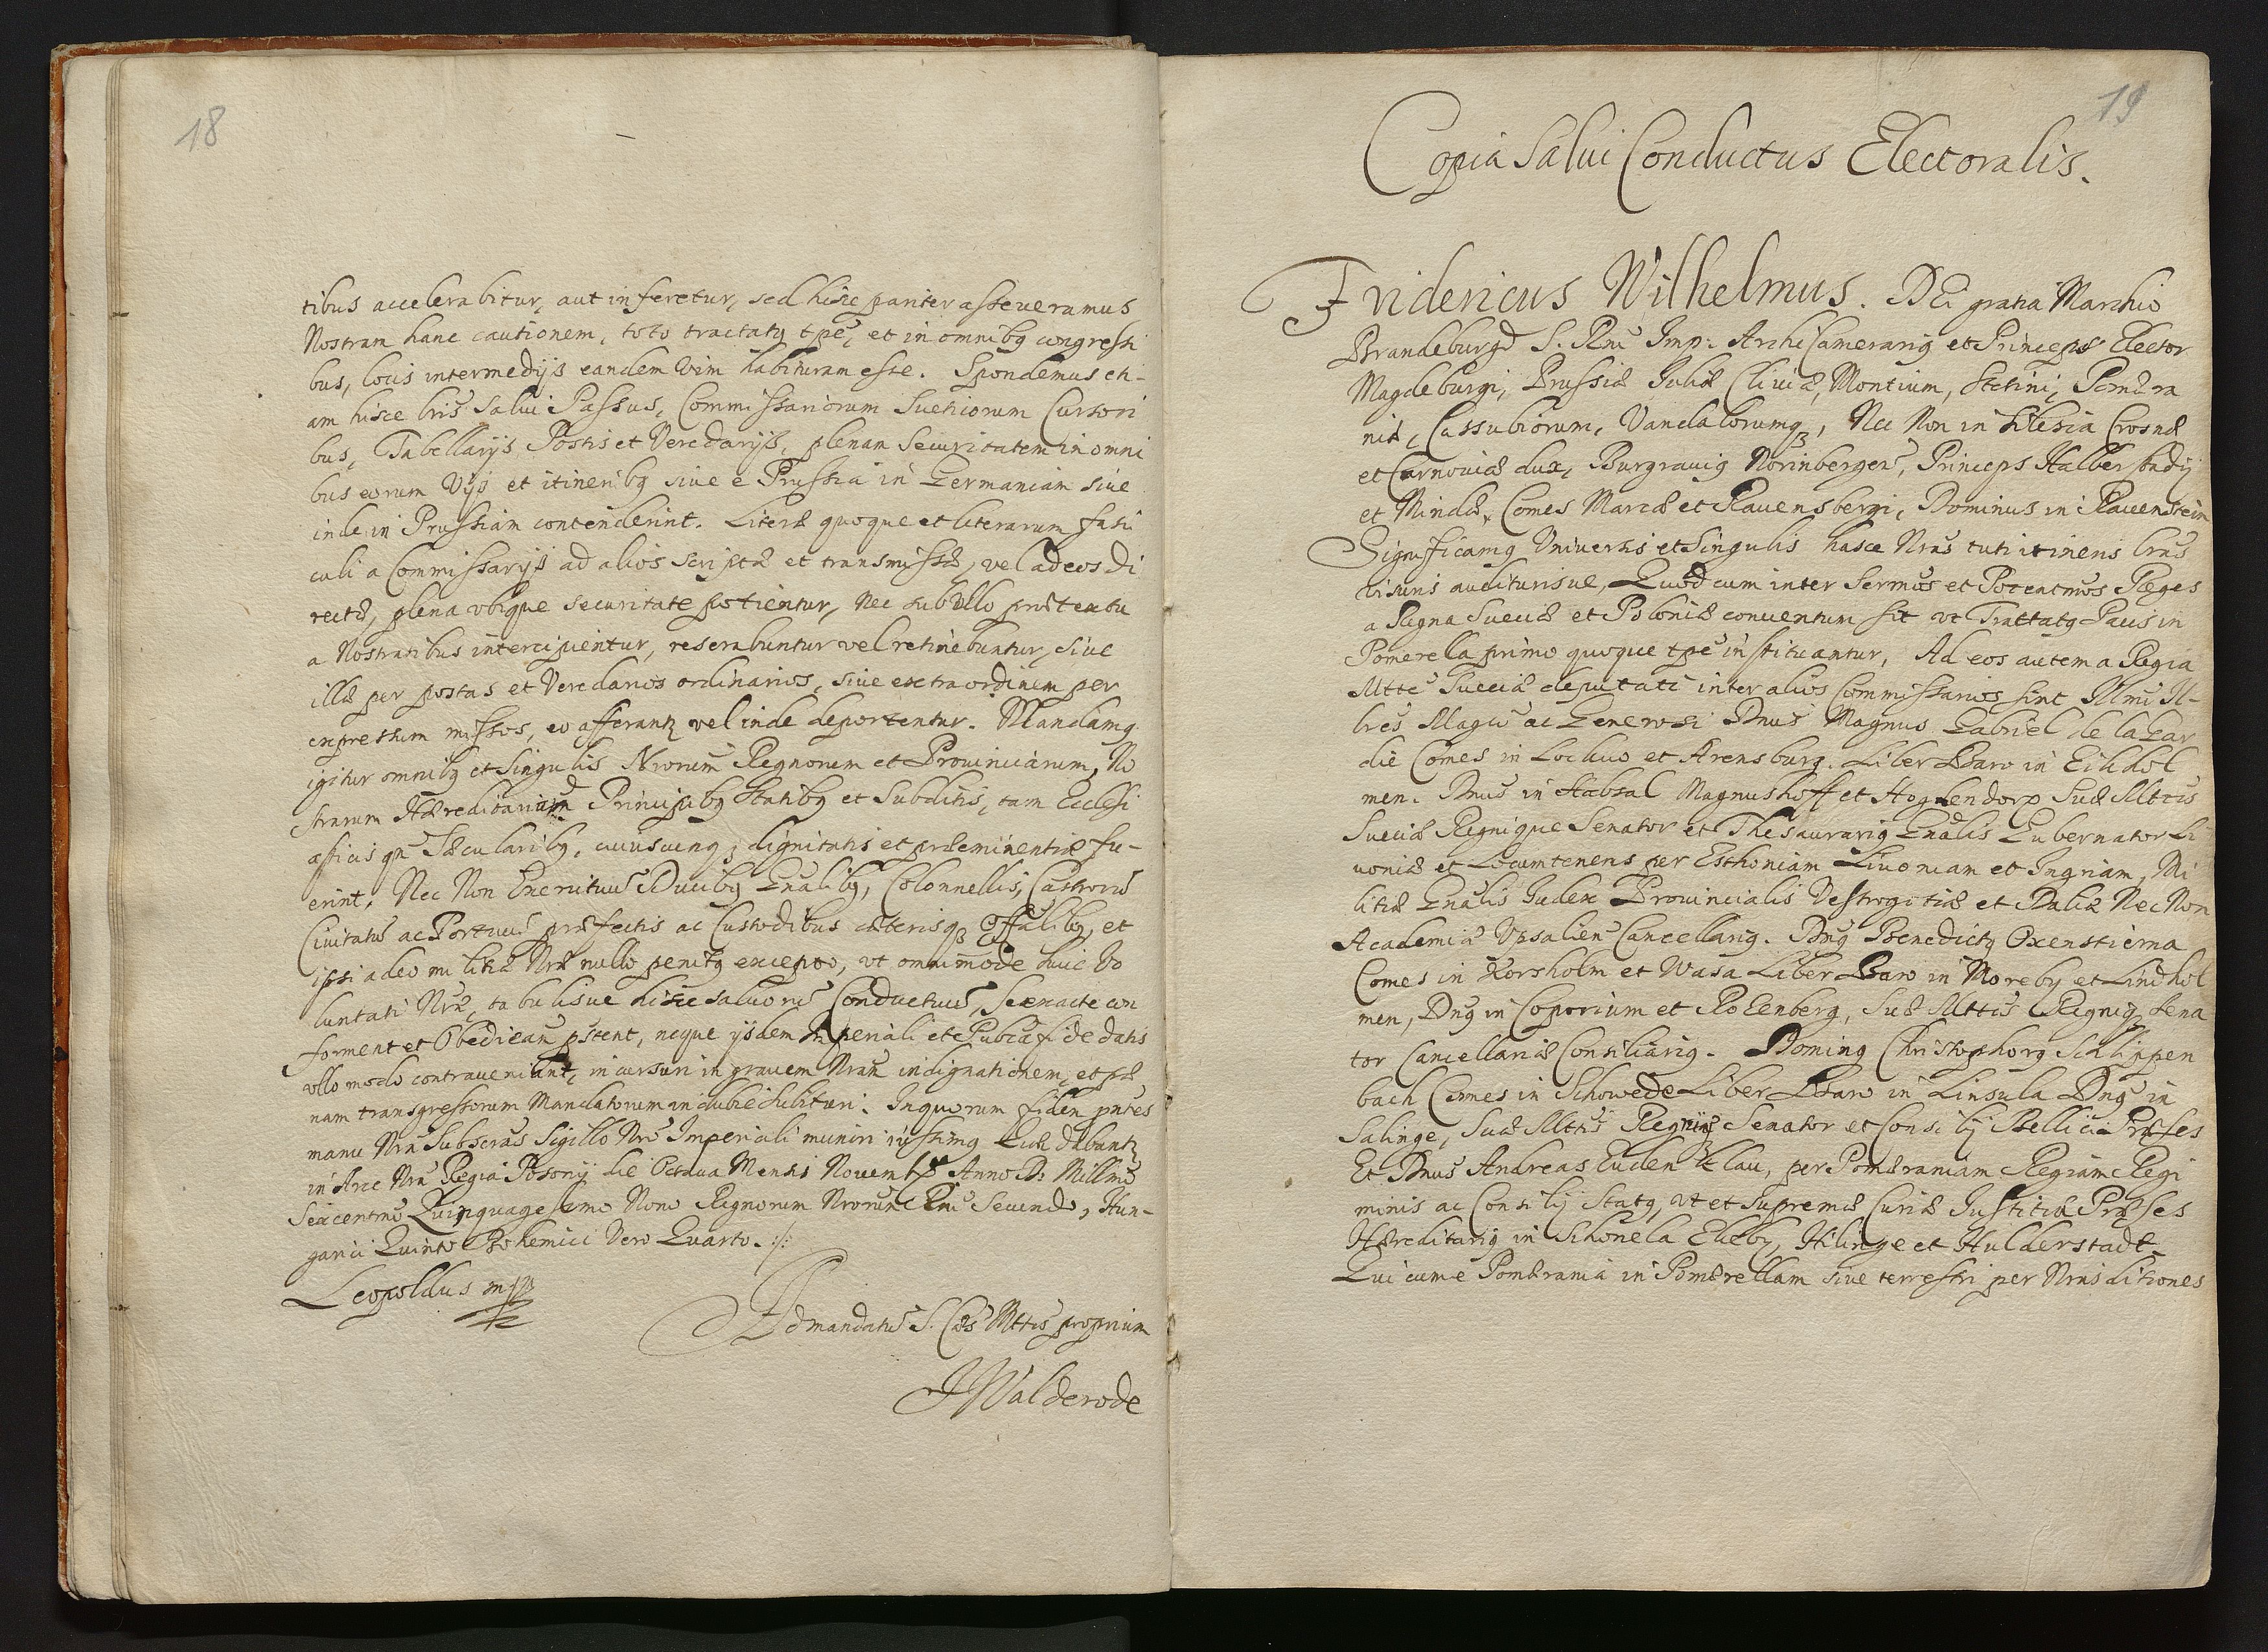 18
tibus accelerabitur, aut inferetur, sed hisce pariter asseueramus
Nostram hanc cautionem, toto tractatq tpe, et in omnibq congressi
bus, locis intermedijs eandem vim habituram esse. Spondemus eti-
am hisce lris Salui Passus, Commissariorum Sueticorum Cursori
bus, Tabellarijs Postis et Veredarijs, plenam Securitatem in omni
bus eorum Vijs et itineribq siue è Prussia in Germaniam siue
inde in Prussiam contenderint. Literæ quoque et literarum fasci
culi a Commissarijs ad alios scriptæ et transmissæ, vel ad eos di
rectæ, plena vbique securitate potientur, nec sub Vllo prætextu
a Nostratibus intercipientur, reserabuntur vel retinebuntur, siue
illæ per postas et Veredarios ordinarios, siue extraordinem per
expressum missos, eo afferantr vel inde deportentur. Mandamq
igitur omnibq et Singulis Nrorum Regnorum et Prouinciarum, No
strarum Hæreditariarum Principibq Statibq et Subditis, tam Ecclesi
asticis qm Sæcularibq, cuiuscunq; dignitatis et præeminentiæ fu-
erint, Nec Non Exercituum Ducibq Gnalibq, Colonnellis, Castrorum
Ciuitatum ac Portuum præfectis ac Custodibus cæterisq; Offialibq, et
ipsi adeo militiæ Nræ nullo penitq excepto, vt omnimode huic Vo
luntati Nræ, tabulisue hisce saluorum Conductuum, se exacte con
forment et Obedieam pstent, neque ijsdem Imperiali et Publica fide datis
vllo modo contraueniant, incursuri in grauem Nram indignationem, et pæ
nam transgressorum Mandatorum indubie subituri. In quorum fidem pntes
manu Nra Subscras Sigillo Nro Imperiali muniri iussimq Quæ dabantr
in Arce Nra Regia Posonij die Octaua Mensis Novembr Anno Di Millmo
Sexcentmo Quinquagesimo Nono Regnorum Nrorum Rni Secundo, Hun-
garici Quinto Bohemici Vero Quarto.
Leopoldus mpp
Ad mandatum S. Cæs Mttis proprium
J Walderode
19
Copia Salui Conductus Electoralis.
Fridericus Wilhelmus. DEi gratia Marchio
Brandeburgd S. Rni Imp: ArchiCamerariq et Princeps Elector
Magdeburgi, Prussiæ Juliæ Cliuiæ, Montium, Stetini, Pomera
niæ, Cassubiorum, Vandalorumq;, Nec Non in Silesia Crosnæ
et Carnouiæ dux, Burgrauiq Norinbergen, Princeps Halberstadij
et Mindæ, Comes Marcæ et Rauensbergi, Dominus in Rauenstein
Significamq Vniuersis et Singulis hasce Nras tuti itineris lras
visuris audituris ue, Quod cum inter Sermos et Potentmos Reges
a Regna Sueciæ et Poloniæ conuentum sit vt Tractatq Pacis in
Pomerella primo quoque tpe instituantur, Ad eos autem a Regia
Mtte Sueciæ deputati inter alios Commissarios sint Illmi Il-
lres Magci ac Generosi Dnus Magnus Gabriel de la Gar
die Comes in Lockuo et Arensburg. Liber Baro in Eikhol
men. Dnus in Habsal Magnushoff et Hogdendorp Suæ Mttis
Sueciæ Regnique Senator et Thesaurariq Gnalis Gubernator Li
uoniæ et Locumtenens per Esthoniam Liuoniam et Ingriam, Mi
litiæ Gnalis Iudex Prouincialis Vestrogotiæ et Daliæ Nec Non
Academiæ Vpsalien Cancellariq. Dnq Benedictq Oxenstierna
Comes in Korsholm et Wasa Liber Baro in Moreby et Lindhol
men, Dnq in Coporium et Rozenberg, Suæ Mttis Regniq Sena
tor Cancellariæ Consiliariq. Dominq Christophorq Schlippen
bach Comes in Schowede Liber Baro in Linsula Dnq in
Salinge, Suæ Mttis Regnijs Senator et Consilij Bellici Præses
Et Dnus Andreas Gulden Klau, per Pomeraniam Regiam Regi
minis ac Consilij Statq, vt et Supremæ Curiæ Iustitiæ Præses
Hæreditariq in Schonela Eheby, Hilinge et Hulderstadt
Qui cum e Pomerania in Pomerellam siue terrestri per Nras ditiones